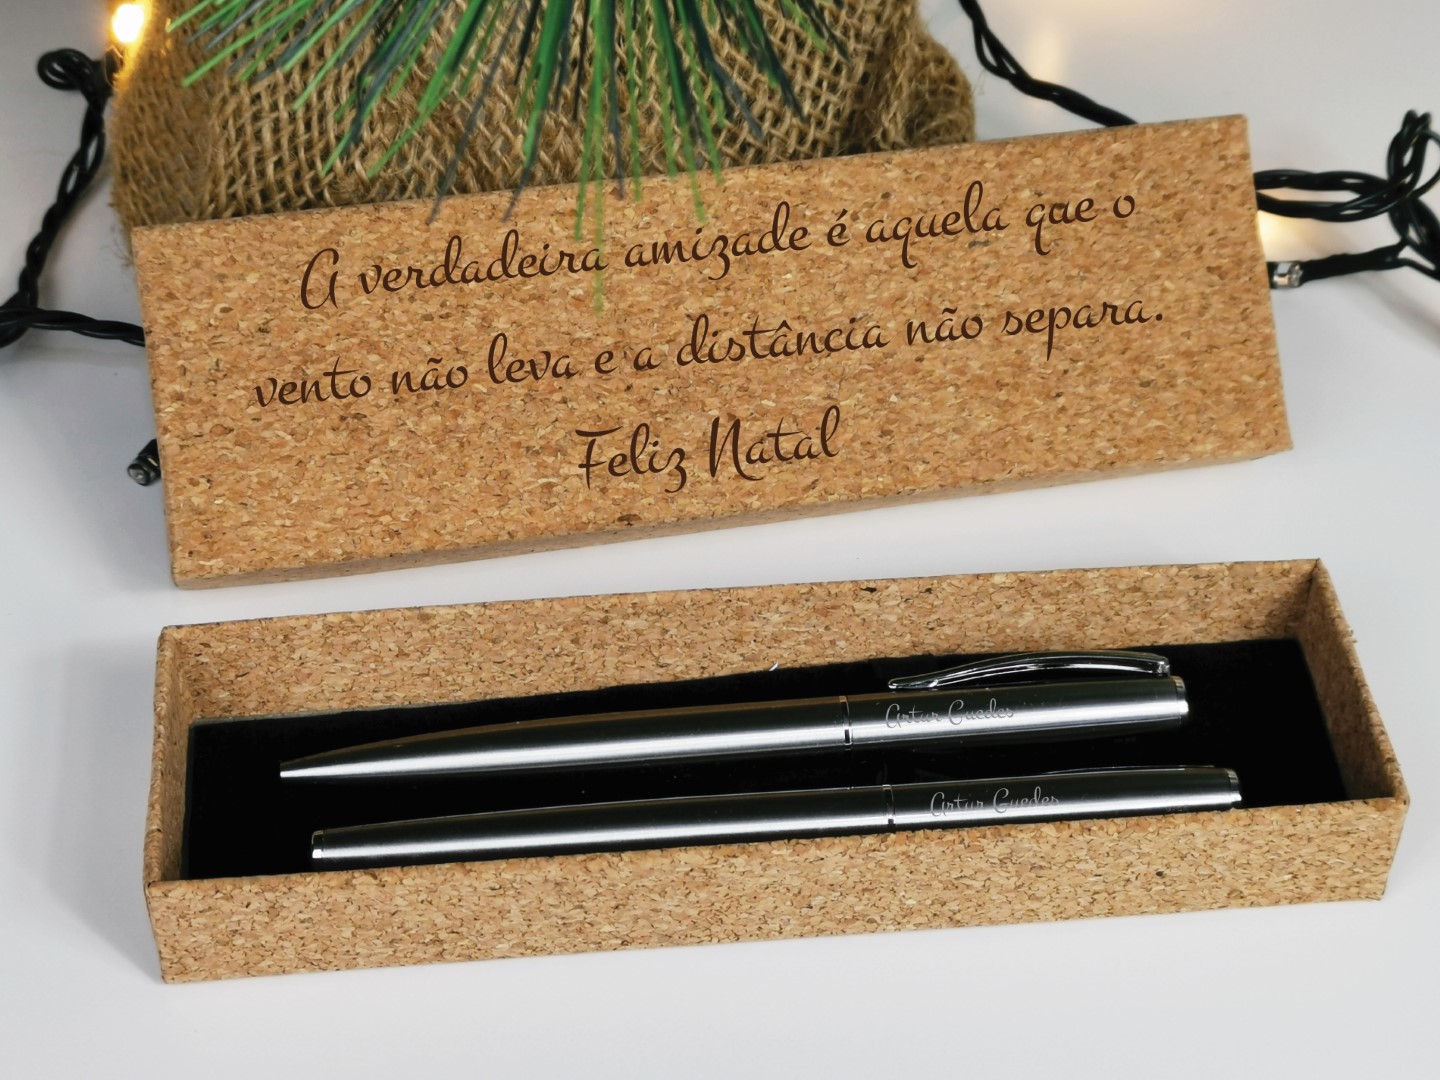 A verdadeira amizade é aquela que o
vento não leva e a distância não separa.
Feliz Natal
Artur Guedes
Artur Guedes